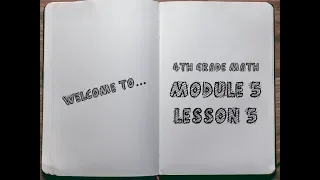 WELCOME TO...
4TH GRADE MATH
MODULE 5
LESSON 5